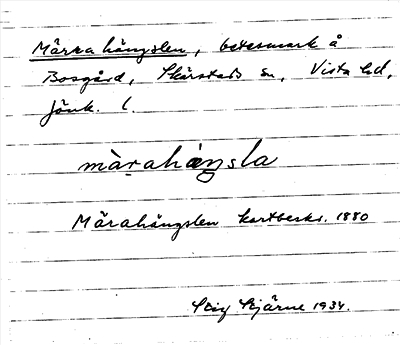 Märrahängslen, betesmark å
Bosgård, Skärstads sn, Vista hd,
Jönk. l.
màrahàngsla
Märahängslen kartbeskr. 1880
Stig Bjärne 1934.